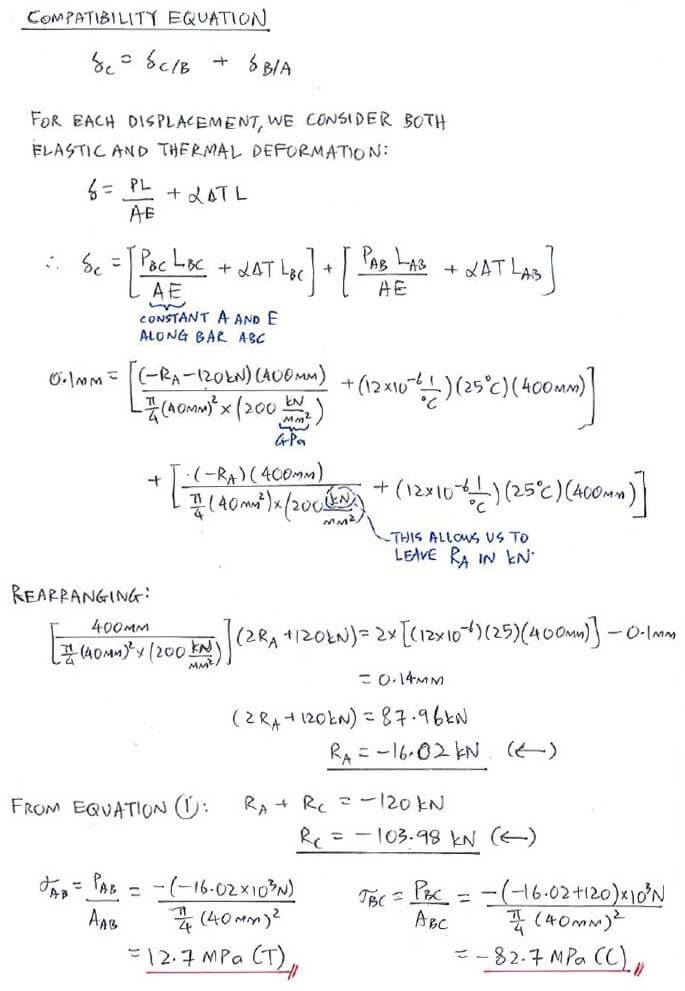 COMPATIBILITY EQUATION
δc = δC/B + δB/A
FOR EACH DISPLACEMENT, WE CONSIDER BOTH
ELASTIC AND THERMAL DEFORMATION:
δ = PL/AE + αΔTL
∴ δc = [PBC LBC/AE + αΔT LBC] + [PAB LAB/AE + αΔT LAB]
CONSTANT A AND E
ALONG BAR ABC
0.1mm = [(-RA-120kN)(400mm)/(π/4(40mm)²×(200 kN/mm²)) + (12×10⁻⁶ 1/°C)(25°C)(400mm)]
GPa
+ [(-RA)(400mm)/(π/4(40mm²)×(200 kN/mm²)) + (12×10⁻⁶ 1/°C)(25°C)(400mm)]
THIS ALLOWS US TO
LEAVE RA IN kN.
REARRANGING:
[400mm/(π/4(40mm)²×(200 kN/mm²))](2RA+120kN) = 2×[(12×10⁻⁶)(25)(400mm)] - 0.1mm
= 0.14mm
(2RA+120kN) = 87.96kN
RA = -16.02 kN (←)
FROM EQUATION ①: RA + RC = -120 kN
RC = -103.98 kN (←)
σAB = PAB/AAB = -(-16.02×10³N)/(π/4(40mm)²)
= 12.7 MPa (T)
σBC = PBC/ABC = -(-16.02+120)×10³N/(π/4(40mm)²)
= -82.7 MPa (C)